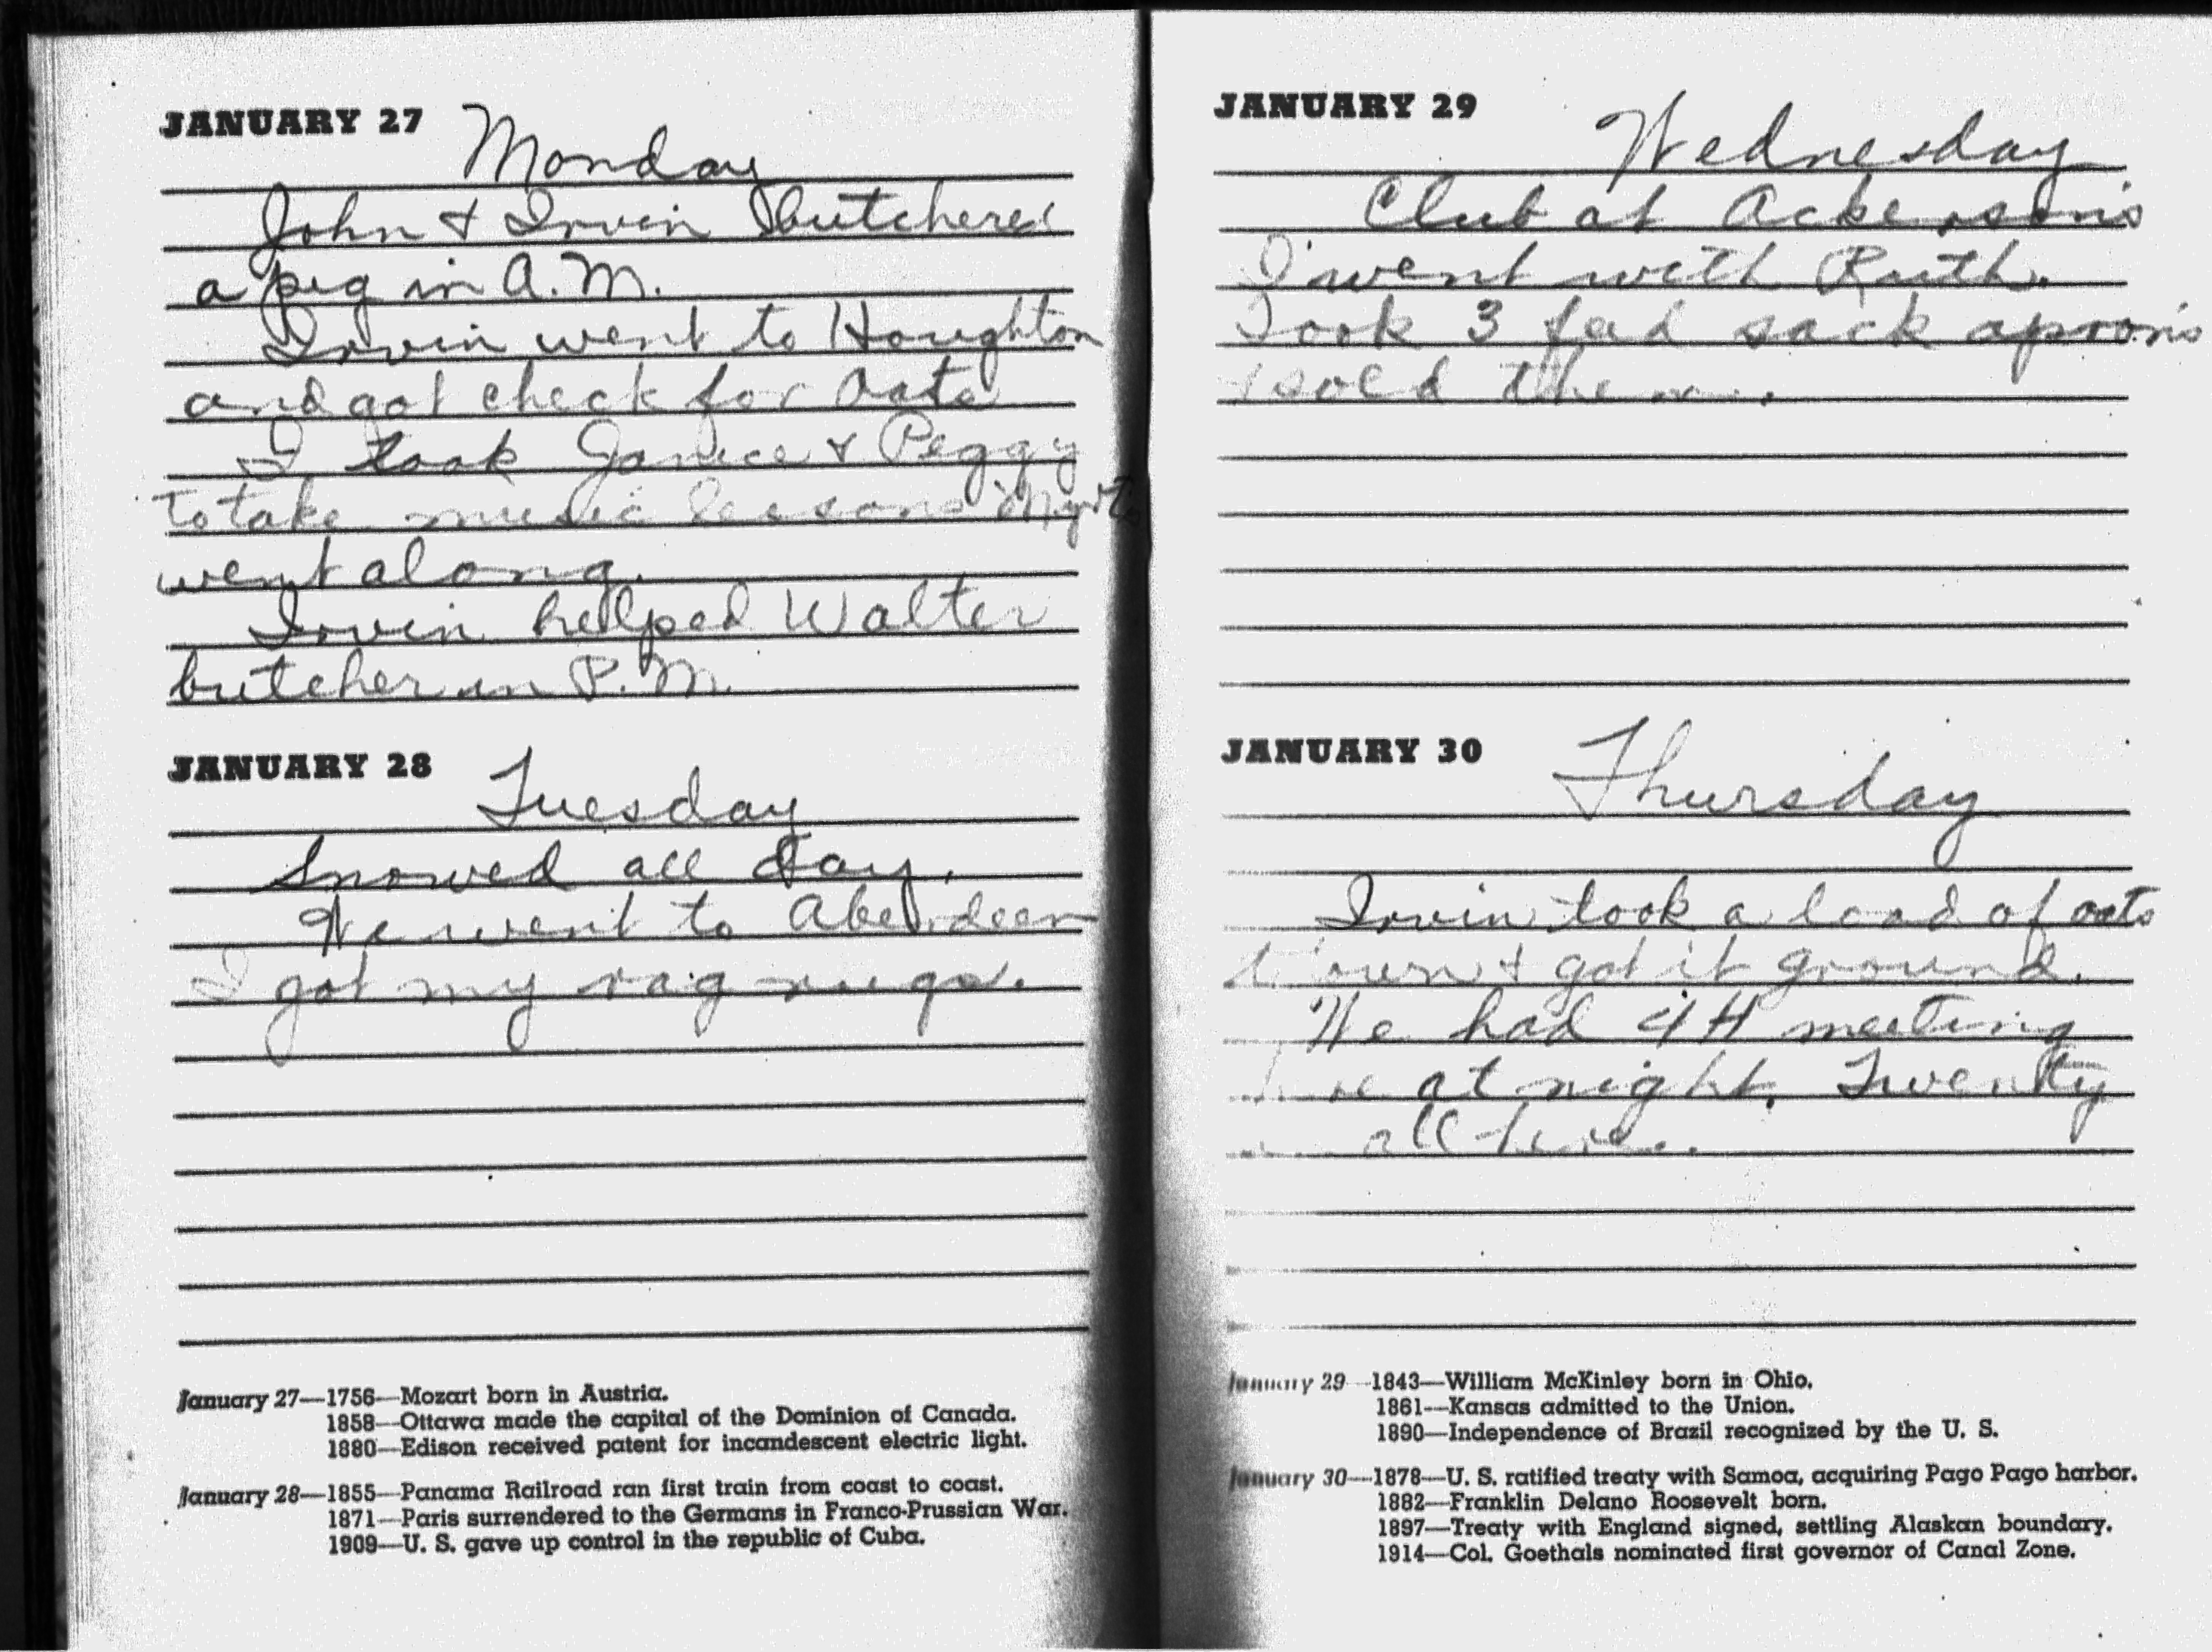 JANUARY 27 Monday
John & Irvin butchered
a pig in A.M.
Irvin went to Houghton
and got check for oats
I took Janice & Peggy
to take music lessons
went along.
Irvin helped Walter
butcher in P.M.
JANUARY 28 Tuesday
Snowed all day.
We went to Aberdeen
I got my rag rugs.
January 27—1756—Mozart born in Austria.
1858—Ottawa made the capital of the Dominion of Canada.
1880—Edison received patent for incandescent electric light.
January 28—1855—Panama Railroad ran first train from coast to coast.
1871—Paris surrendered to the Germans in Franco-Prussian War.
1909—U. S. gave up control in the republic of Cuba.
JANUARY 29 Wednesday
Club at Ackersons
I went with Ruth.
Took 3 feed sack aprons
& sold them.
JANUARY 30 Thursday
Irvin took a load of oats
& got it ground.
We had 4H meeting
at night. Twenty
all
January 29—1843—William McKinley born in Ohio.
1861—Kansas admitted to the Union.
1890—Independence of Brazil recognized by the U. S.
January 30—1878—U. S. ratified treaty with Samoa, acquiring Pago Pago harbor.
1882—Franklin Delano Roosevelt born.
1897—Treaty with England signed, settling Alaskan boundary.
1914—Col. Goethals nominated first governor of Canal Zone.